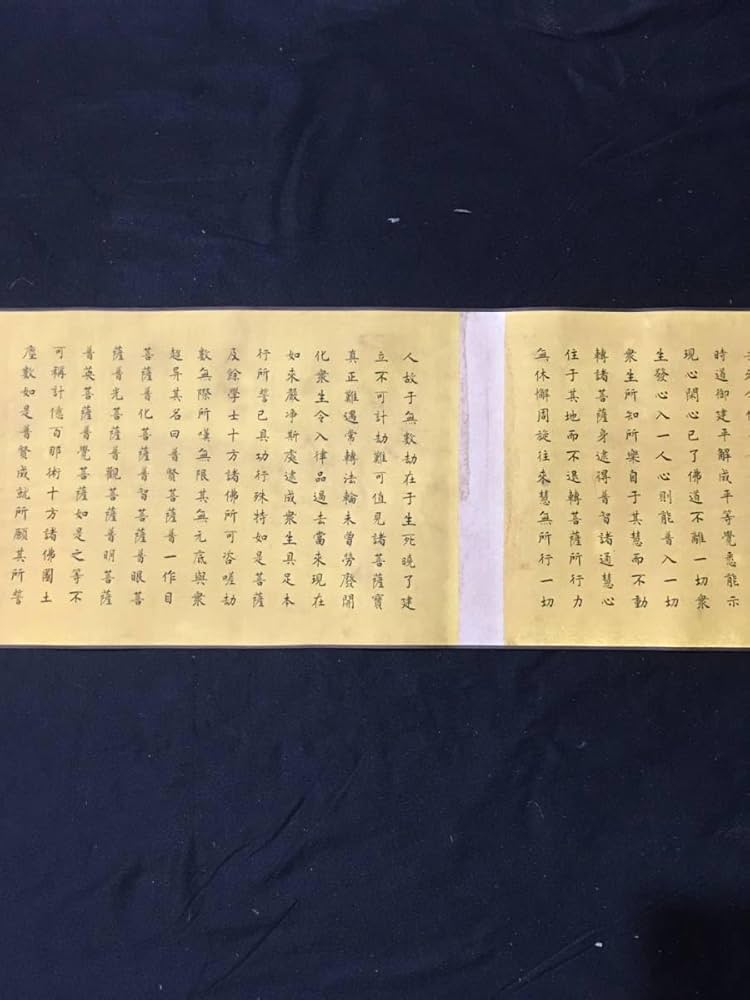 時道御建平解成平等覺悉能示
現心閱心已了佛道不離一切衆
生發心入一人心則能普入一切
衆生所知所樂自于其慧而不動
轉諸菩薩身逮得普智諸通慧心
住于其地而不退轉菩薩所行力
無休懈周旋往來慧無所行一切
人故于無數劫在于生死曉了建
立不可計劫難可值見諸菩薩寶
真正難遇常轉法輪未曾勞廢開
化衆生令入律品過去當來現在
如來嚴淨斯處逮成衆生具足本
行所誓已具功行殊特如是菩薩
及餘學士十方諸佛所可咨嗟劫
數無際所嘆無限其無元底與衆
超異其名曰普賢菩薩普一作目
菩薩普化菩薩普智菩薩普眼菩
薩普光菩薩普觀菩薩普明菩薩
普英菩薩普覺菩薩如是之等不
可稱計億百那術十方諸佛國土
塵數如是普賢成就所願其所誓